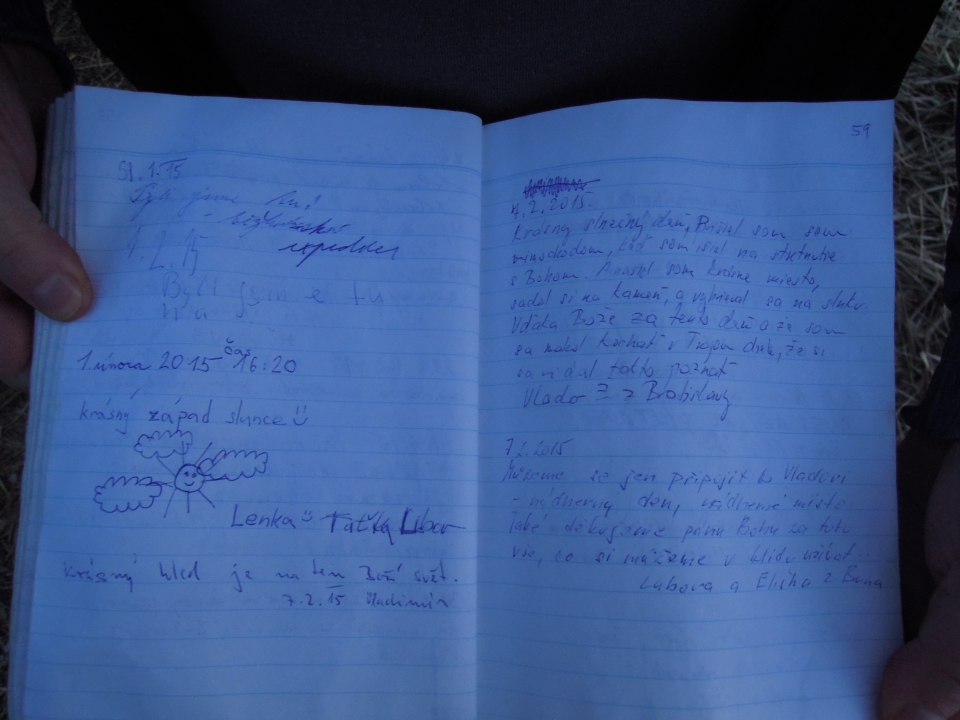 31.1.15
Byli jsme tu!
1.2.15
Byli jsme tu
1. února 2015 čas 16:20
krásný západ slunce
Lenka Taťka Libor
Krásný hled je na ten Boží svět.
7.2.15 Vladimír
59
7.2.2015
Krásny slnečný deň, Prišiel som sem
mimochodom, keď som išiel na stretnutie
s Bohom. A našiel som krásne miesto,
sadol si na kameň, a vyhrieval sa na slnku.
Vďaka Bože za tento deň a že som
sa mohol kochať v Tvojom diele, že si
sa mi dal takto poznať
Vlado z Bratislavy
7.2.2015
Můžeme se jen připojit k Vladovi
- nádherný den, nádherné místo
Také děkujeme pánu Bohu za toto
vše, co si můžeme v klidu užívat...
a Eliška z Brna